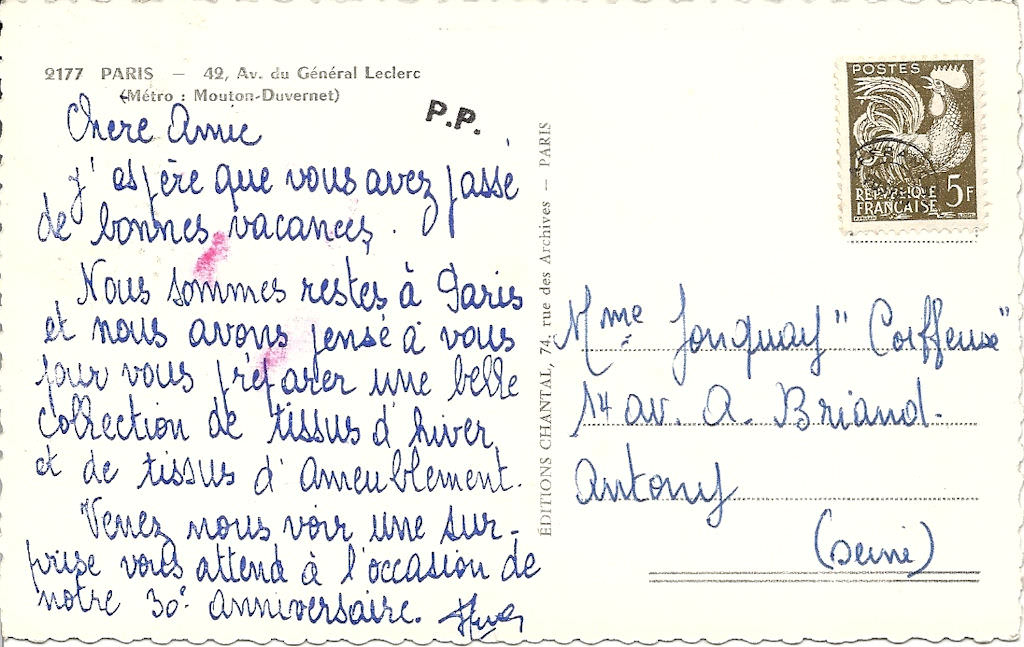 2177 PARIS — 42, Av. du Général Leclerc
(Métro : Mouton-Duvernet)
P.P.
Chere Amie
J'espère que vous avez passé
de bonnes vacances.
Nous sommes restes à Paris
et nous avons pensé à vous
pour vous préparer une belle
collection de tissus d'hiver
et de tissus d'Ameublement.
Venez nous voir une sur-
prise vous attend à l'occasion de
notre 30e anniversaire.
ÉDITIONS CHANTAL, 74, rue des Archives — PARIS
POSTES
RÉPUBLIQUE
FRANÇAISE 5F
Mme Jonquay "Coiffeuse"
14 av. A. Briand.
Antony
(Seine)